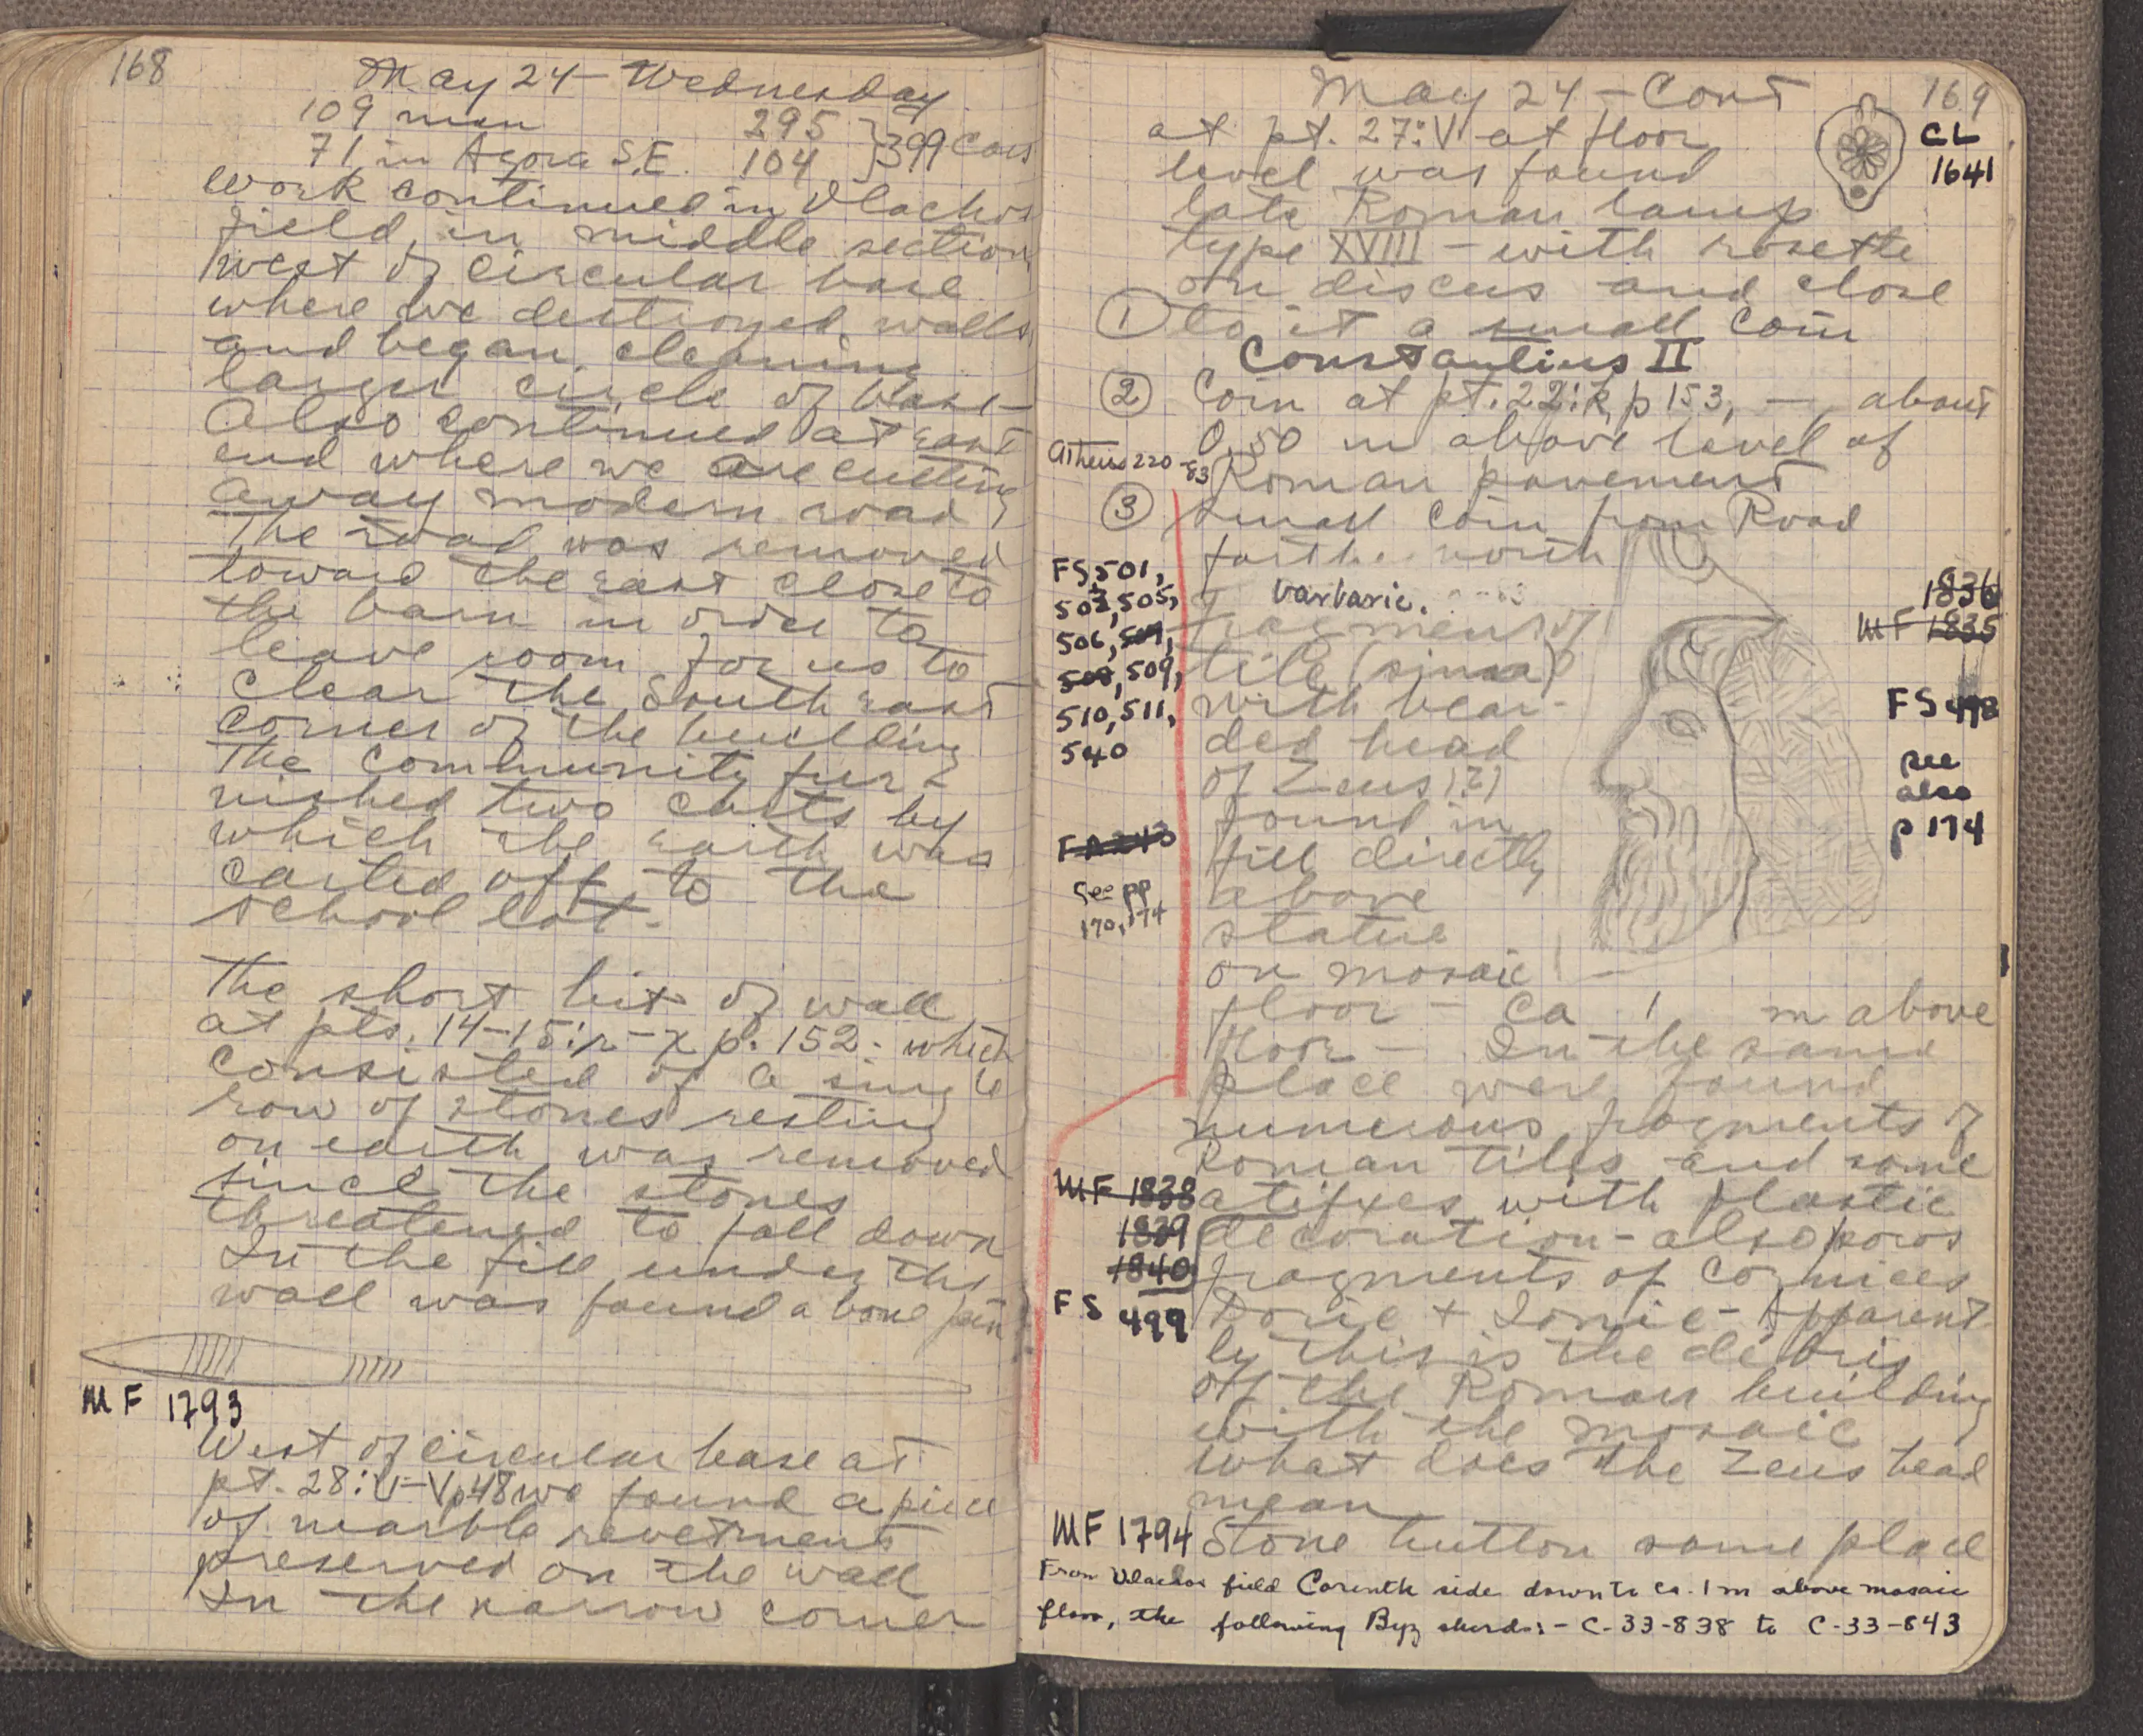 168
May 24 - Wednesday
109 men 295
71 in Agora S.E. 104 } 399 Cars
Work continued in Vlachos
field, in middle section
west of circular base
where we destroyed walls
and began cleaning
larger circle of base -
Also continued at east
end where we are cutting
away modern road,
The road was removed
toward the east close to
the barn in order to
leave room for us to
clear the South east
corner of the building
The community fur-
nished two carts by
which the earth was
carted off to the
school lot.
The short bit of wall
at pts. 14-15: r-x p. 152. which
consisted of a single
row of stones resting
on earth was removed
since the stones
threatened to fall down
In the fill under the
wall was found a bone pin
MF 1793
West of circular base at
pt. 28: U-V p 48 we found a piece
of marble revetment
preserved on the wall
In the narrow corner
May 24 - Cont 169
at pt. 27:V at floor
level was found
late Roman lamp
type XVIII - with rosette
on discus and close
① to it a small coin
Constantius II
CL
1641
② Coin at pt. 22:k, p 153, - about
0,50 m above level of
Roman pavement
Atheiso 220-83
③ Small coin from Road
farther north
barbaric.
FS 501,
503, 505,
506, 507,
508, 509,
510, 511,
540
FA 243
See pp
170, 174
Fragment of
tile (sima)
with bear-
ded head
of Zeus (?)
found in
fill directly
above
statue
on mosaic
floor - Ca 1 m above
floor - In the same
place were found
numerous fragments of
Roman tiles and some
atifxes with plastic
decoration - also poros
fragments of cornices
Doric + Ionic - Apparent-
ly this is the debris
of the Roman building
with the mosaic
What does the Zeus head
mean
1836
MF 1835
FS 498
see
also
p 174
MF 1838
1839
1840
FS 499
MF 1794 Stone button same place
From Vlachos field Corinth side down to ca. 1 m above mosaic
floor, the following Byz sherds: - C-33-838 to C-33-843